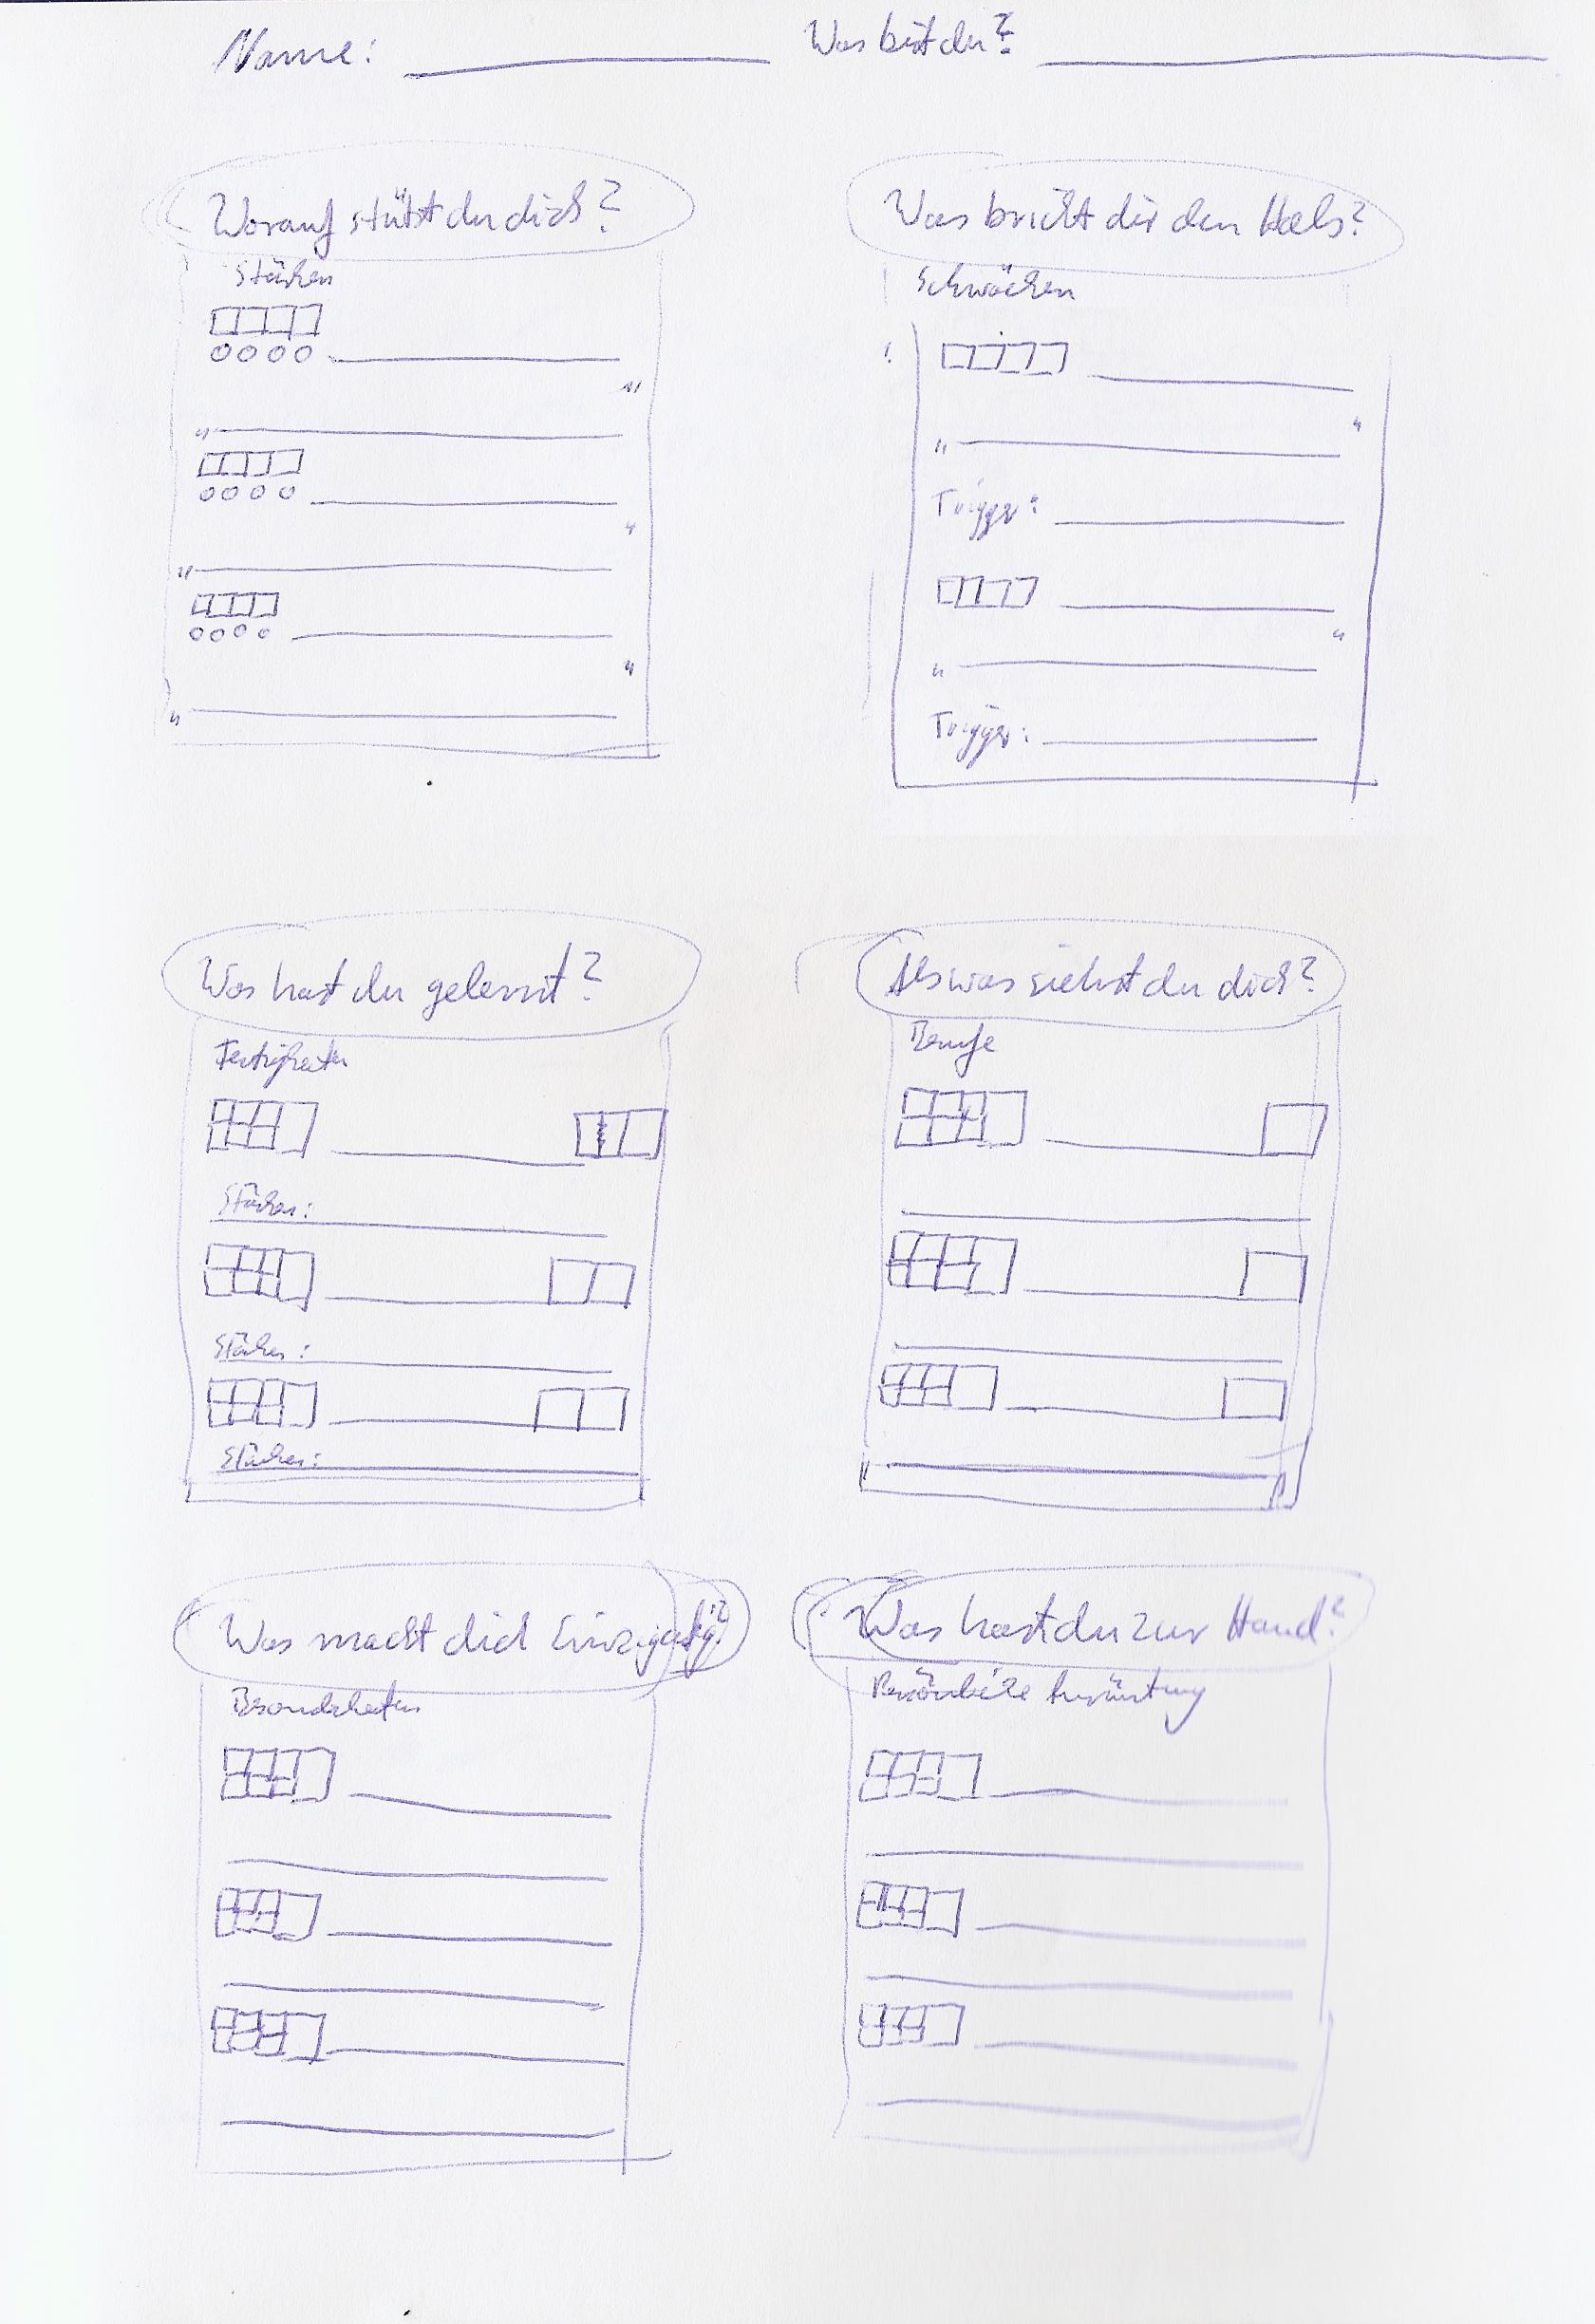 Name: Was bist du?
Worauf stützt du dich?
Stärken
"
"
"
"
"
"
Was bricht dir den Hals?
Schwächen
"
"
Trigger:
"
"
Trigger:
Was hast du gelernt?
Fertigkeiten
Stärken:
Stärken:
Stärken:
Als was siehst du dich?
Berufe
"
"
Was macht dich Einzigartig?
Besonderheiten
Was hast du zur Hand?
Persönliche Ausrüstung